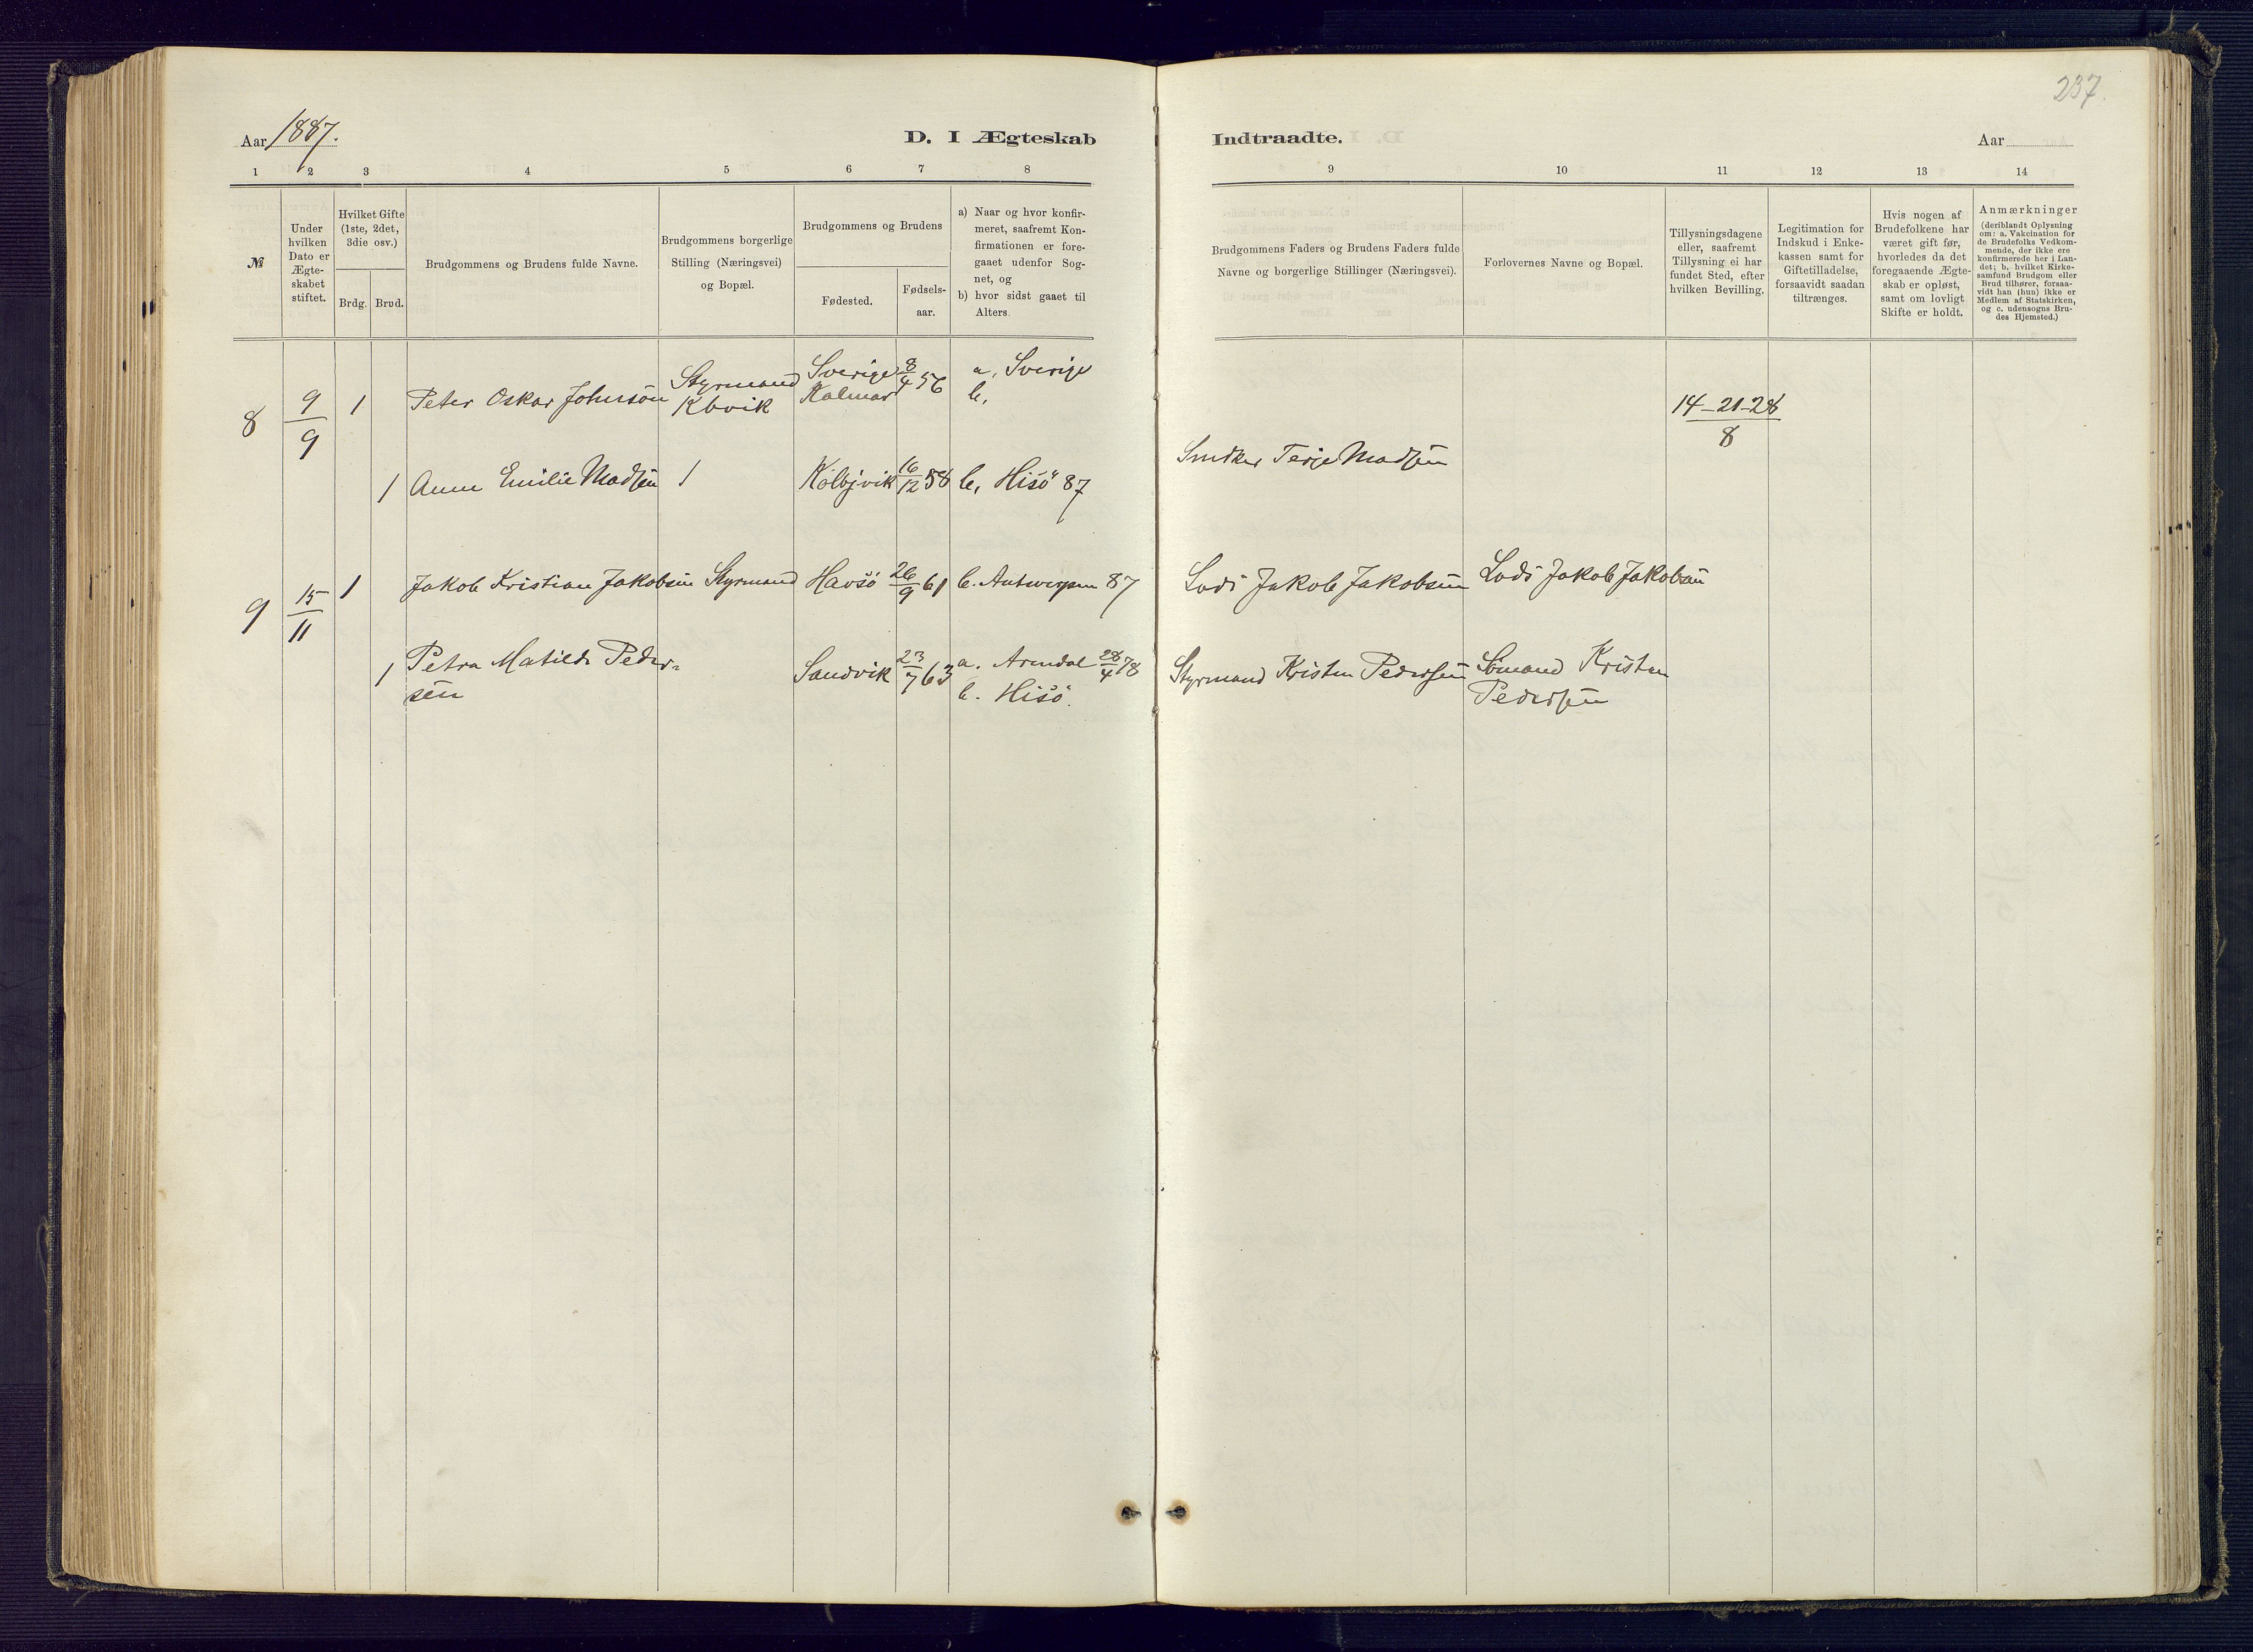 237.
Aar 1887.
D. I Ægteskab
Indtraadte.
Aar
1 2 3 4 5 6 7 8
9 10 11 12 13 14
№
Under
hvilken
Dato er
Ægte-
skabet
stiftet.
Hvilket Gifte
(1ste, 2det,
3die osv.)
Brdg. Brud.
Brudgommens og Brudens fulde Navne.
Brudgommens borgerlige
Stilling (Næringsvei)
og Bopæl.
Brudgommens og Brudens
Fødested.
Fødsels-
aar.
a) Naar og hvor konfir-
meret, saafremt Kon-
firmationen er fore-
gaaet udenfor Sog-
net, og
b) hvor sidst gaaet til
Alters.
Brudgommens Faders og Brudens Faders fulde
Navne og borgerlige Stillinger (Næringsvei).
Forlovernes Navne og Bopæl.
Tillysningsdagene
eller, saafremt
Tillysning ei har
fundet Sted, efter
hvilken Bevilling.
Legitimation for
Indskud i Enke-
kassen samt for
Giftetilladelse,
forsaavidt saadan
tiltrænges.
Hvis nogen af
Brudefolkene har
været gift før,
hvorledes da det
foregaaende Ægte-
skab er opløst,
samt om lovligt
Skifte er holdt.
Anmærkninger
(deriblandt Oplysning
om: a. Vakcination for
de Brudefolks Vedkom-
mende, der ikke ere
konfirmerede her i Lan-
det; b. hvilket Kirke-
samfund Brudgom eller
Brud tilhører, forsaa-
vidt han (hun) ikke er
Medlem af Statskirken,
og c. udensogns Bru-
des Hjemsted.)
8 9/9 1 Peter Oskar Johnsön
Styrmand
Kbvik
Sverige
Kalmar
8/4 56
a, Sverige
b,
14-21-28
8
1 Anne Emilie Madsen 1 Kolbjvik 16/12 58 b, Hisö 87
Terje Madsen
9 15/11 1 Jakob Kristian Jakobsen Styrmand Havsö 26/9 61 b. Antwerpen 87
Lods Jakob Jakobsen
Lods Jakob Jakobsen
1 Petra Matilde Peder-
sen
Sandvik 23/7 63
a. Arendal 28/4 78
b. Hisö.
Styrmand Kristen Pedersen
Sömand Kristen
Pedersen